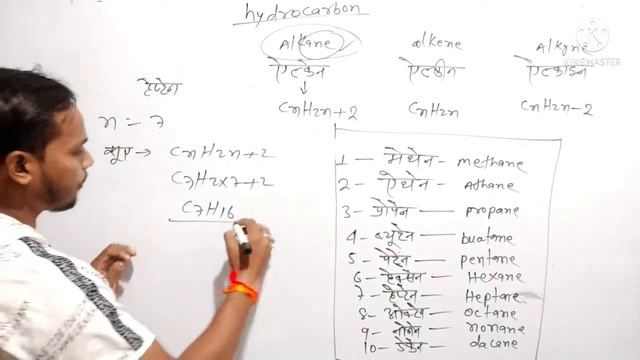 hydrocarbon
Alkane alkene Alkyne
ऐल्केन ऐल्कीन ऐल्काइन
↓
CnH2n+2 CnH2n CnH2n-2
हेप्टेन
n = 7
सूत्र → CnH2n+2
C7H2x7+2
C7H16
1 - मेथेन - methane
2 - ऐथेन - Athane
3 - प्रोपेन - propane
4 - ब्यूटेन - buatane
5 - पेंटेन - pentane
6 - हेक्सेन - Hexane
7 - हेप्टेन - Heptane
8 - ऑक्टेन - octane
9 - नोनेन - nonane
10 - डेकेन - dacane
KINEMASTER